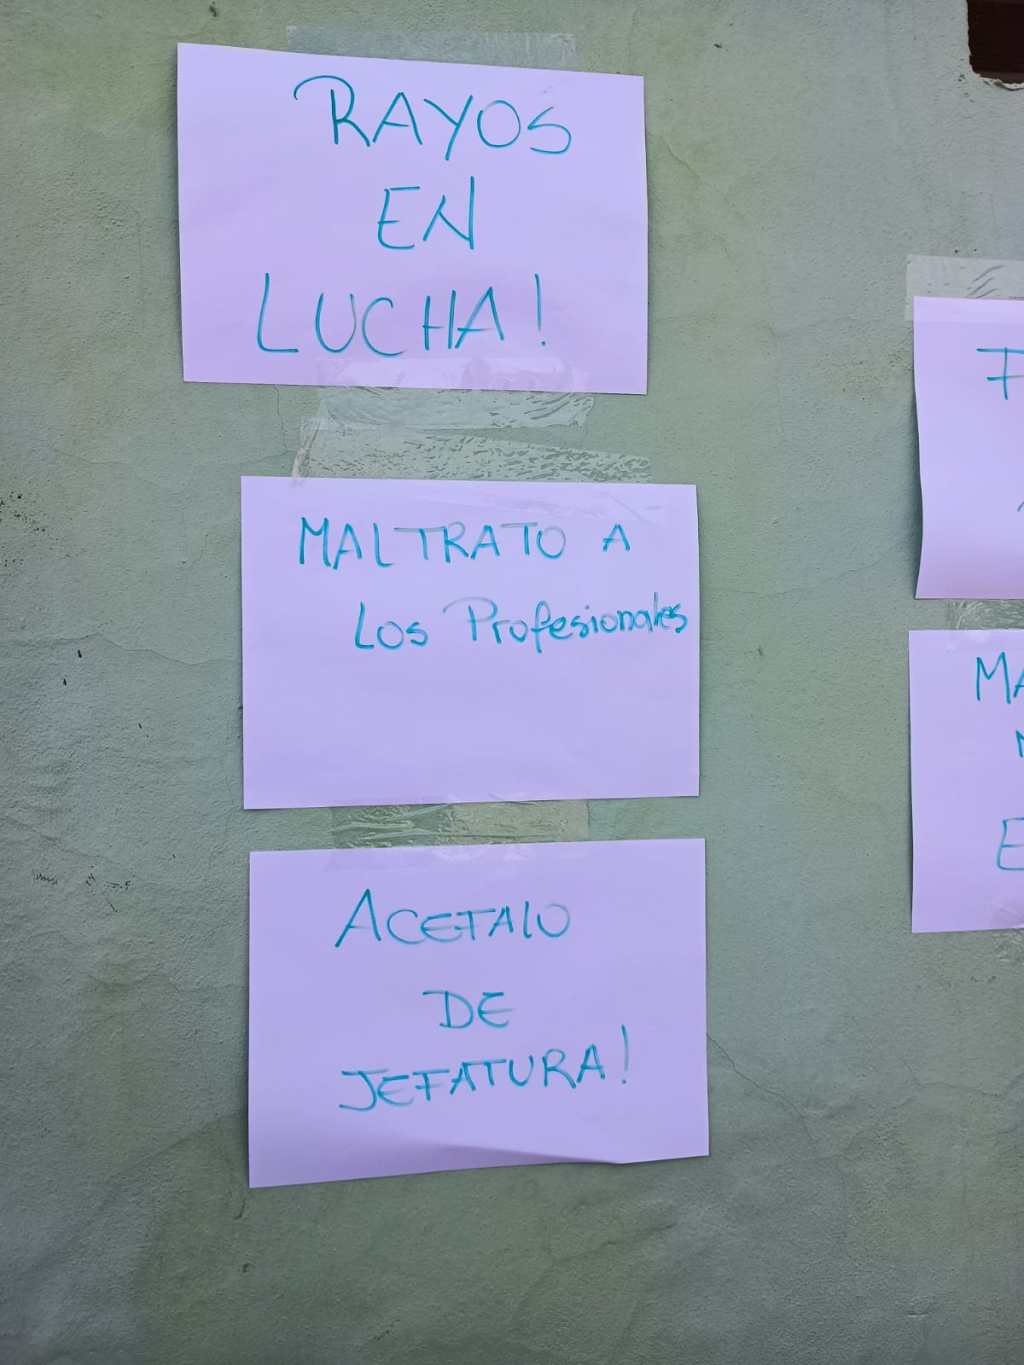 RAYOS
EN
LUCHA!
MALTRATO A
Los Profesionales
ACEFALO
DE
JEFATURA!
F
MA
E